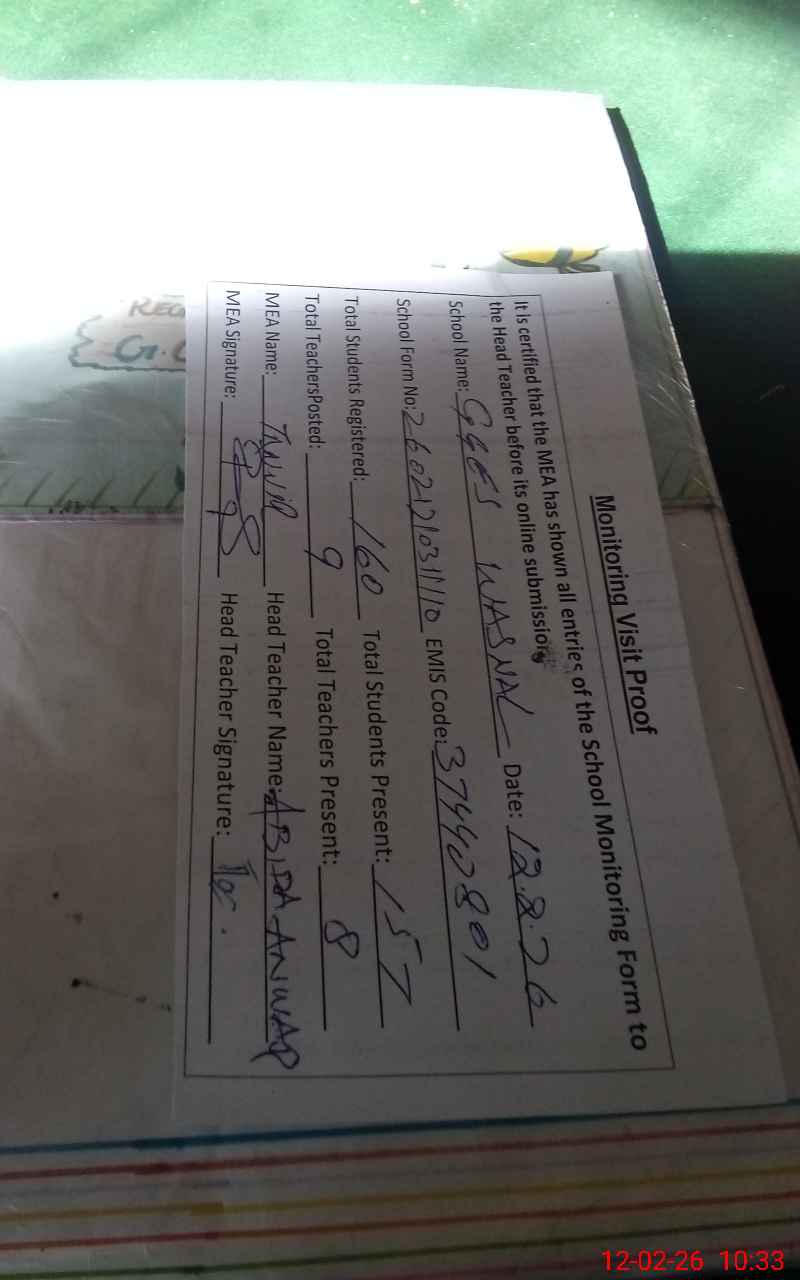 Monitoring Visit Proof
It is certified that the MEA has shown all entries of the School Monitoring Form to
the Head Teacher before its online submission.
School Name: GGES WASNAL Date: 12.2.26
School Form No: EMIS Code: 37440801
Total Students Registered: 160 Total Students Present: 157
Total TeachersPosted: 9 Total Teachers Present: 8
MEA Name: Head Teacher Name: ABIDA ANWAR
MEA Signature: Head Teacher Signature:
REG
G.G
12-02-26 10:33